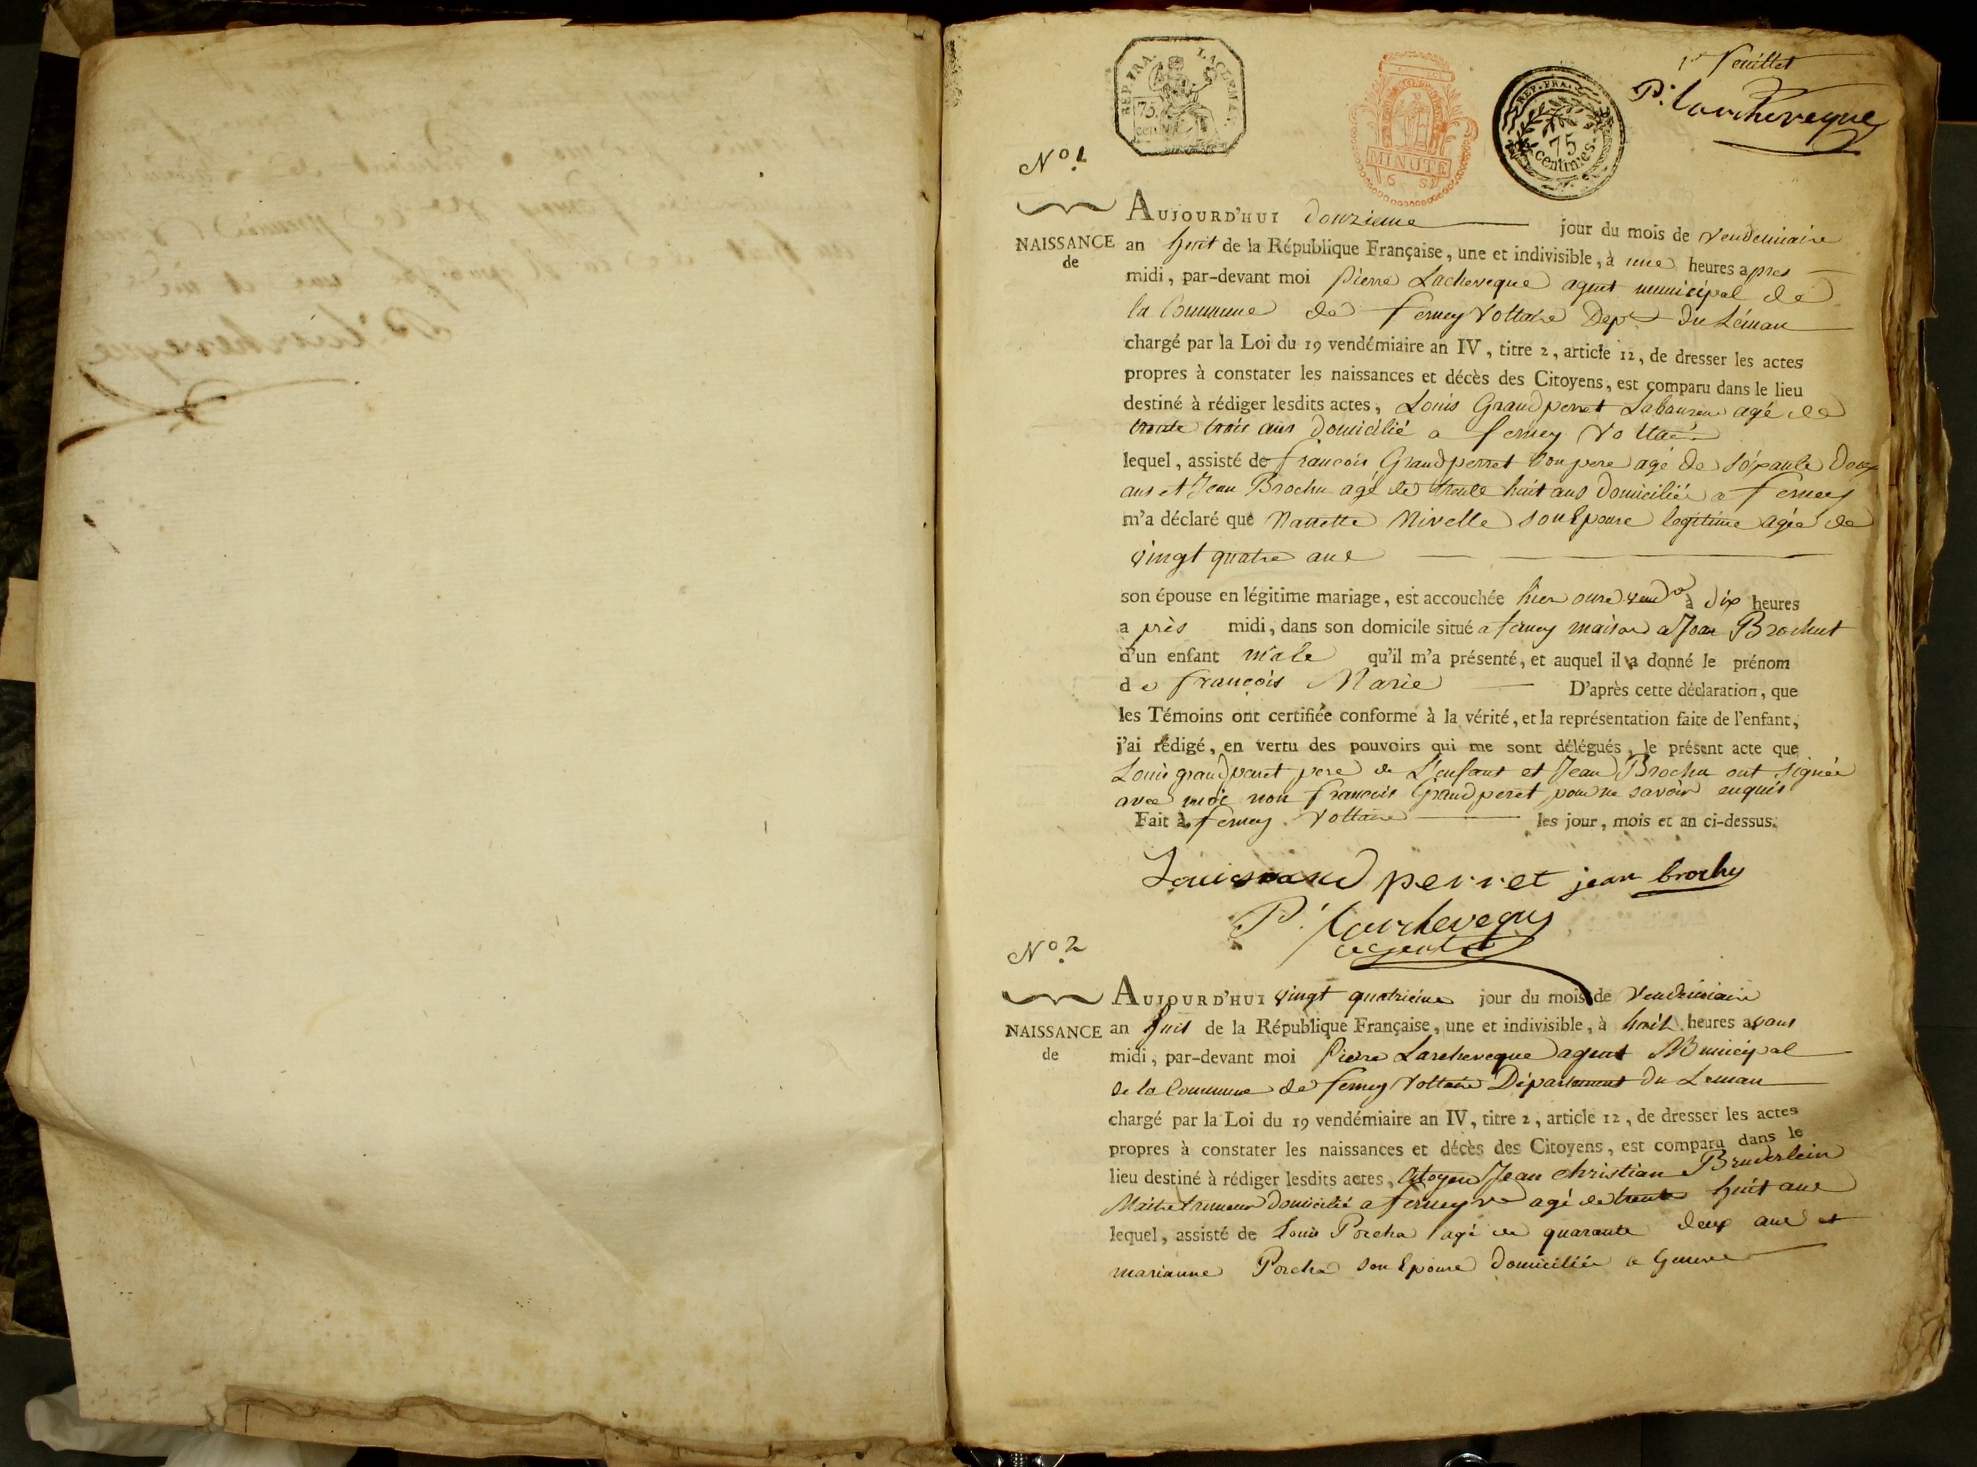 1er feuillet
Pre Larcheveque
REP. FRA.
75
centimes.
MINUTE
REP. FRA.
75
centimes.
No 1.
AUJOURD'HUI douzieme jour du mois de vendemiaire
NAISSANCE
de
an huit de la République Française, une et indivisible, à une heures apres
midi, par-devant moi Pierre Lacheveque agent municipal de
la Commune de ferney Voltaire Dept du Léman
chargé par la Loi du 19 vendémiaire an IV, titre 2, article 12, de dresser les actes
propres à constater les naissances et décès des Citoyens, est comparu dans le lieu
destiné à rédiger lesdits actes, Louis Grandperret agé de
trente trois ans domicilié a ferney
lequel, assisté de francois Grandperret son pere agé de
ans et Jean Brochu agé de trente huit ans domiciliés a ferney
m'a déclaré que Nanette Nivelle son Epouse legitime agée de
vingt quatre ans
son épouse en légitime mariage, est accouchée hier onze vendre à dix heures
après midi, dans son domicile situé a ferney maison a Jean Brochut
d'un enfant male qu'il m'a présenté, et auquel il a donné le prénom
de françois Marie D'après cette déclaration, que
les Témoins ont certifiée conforme à la vérité, et la représentation faite de l'enfant,
j'ai rédigé, en vertu des pouvoirs qui me sont délégués, le présent acte que
Louis grandperret pere de L'enfant et Jean Brochu ont signée
avec moi non francois Grandperet pour ne savoir enquis
Fait à ferney Voltaire les jour, mois et an ci-dessus.
Louis grand perret jean brochu
Pre Larcheveque
agent
No 2
AUJOURD'HUI vingt quatrieme jour du mois de Vendemiaire
NAISSANCE
de
an huit de la République Française, une et indivisible, à huit heures avant
midi, par-devant moi Pierre Larcheveque agent Municipal
de la Commune de ferney Voltaire Département du Leman
chargé par la Loi du 19 vendémiaire an IV, titre 2, article 12, de dresser les actes
propres à constater les naissances et décès des Citoyens, est comparu dans le
lieu destiné à rédiger lesdits actes, Citoyen Jean christian Bruderlein
Maitre tanneur domicilié a ferney Vre agé de trente huit ans
lequel, assisté de Louis Porcha agé de quarante deux ans et
marianne Porcha son Epouse domiciliés a Geneve